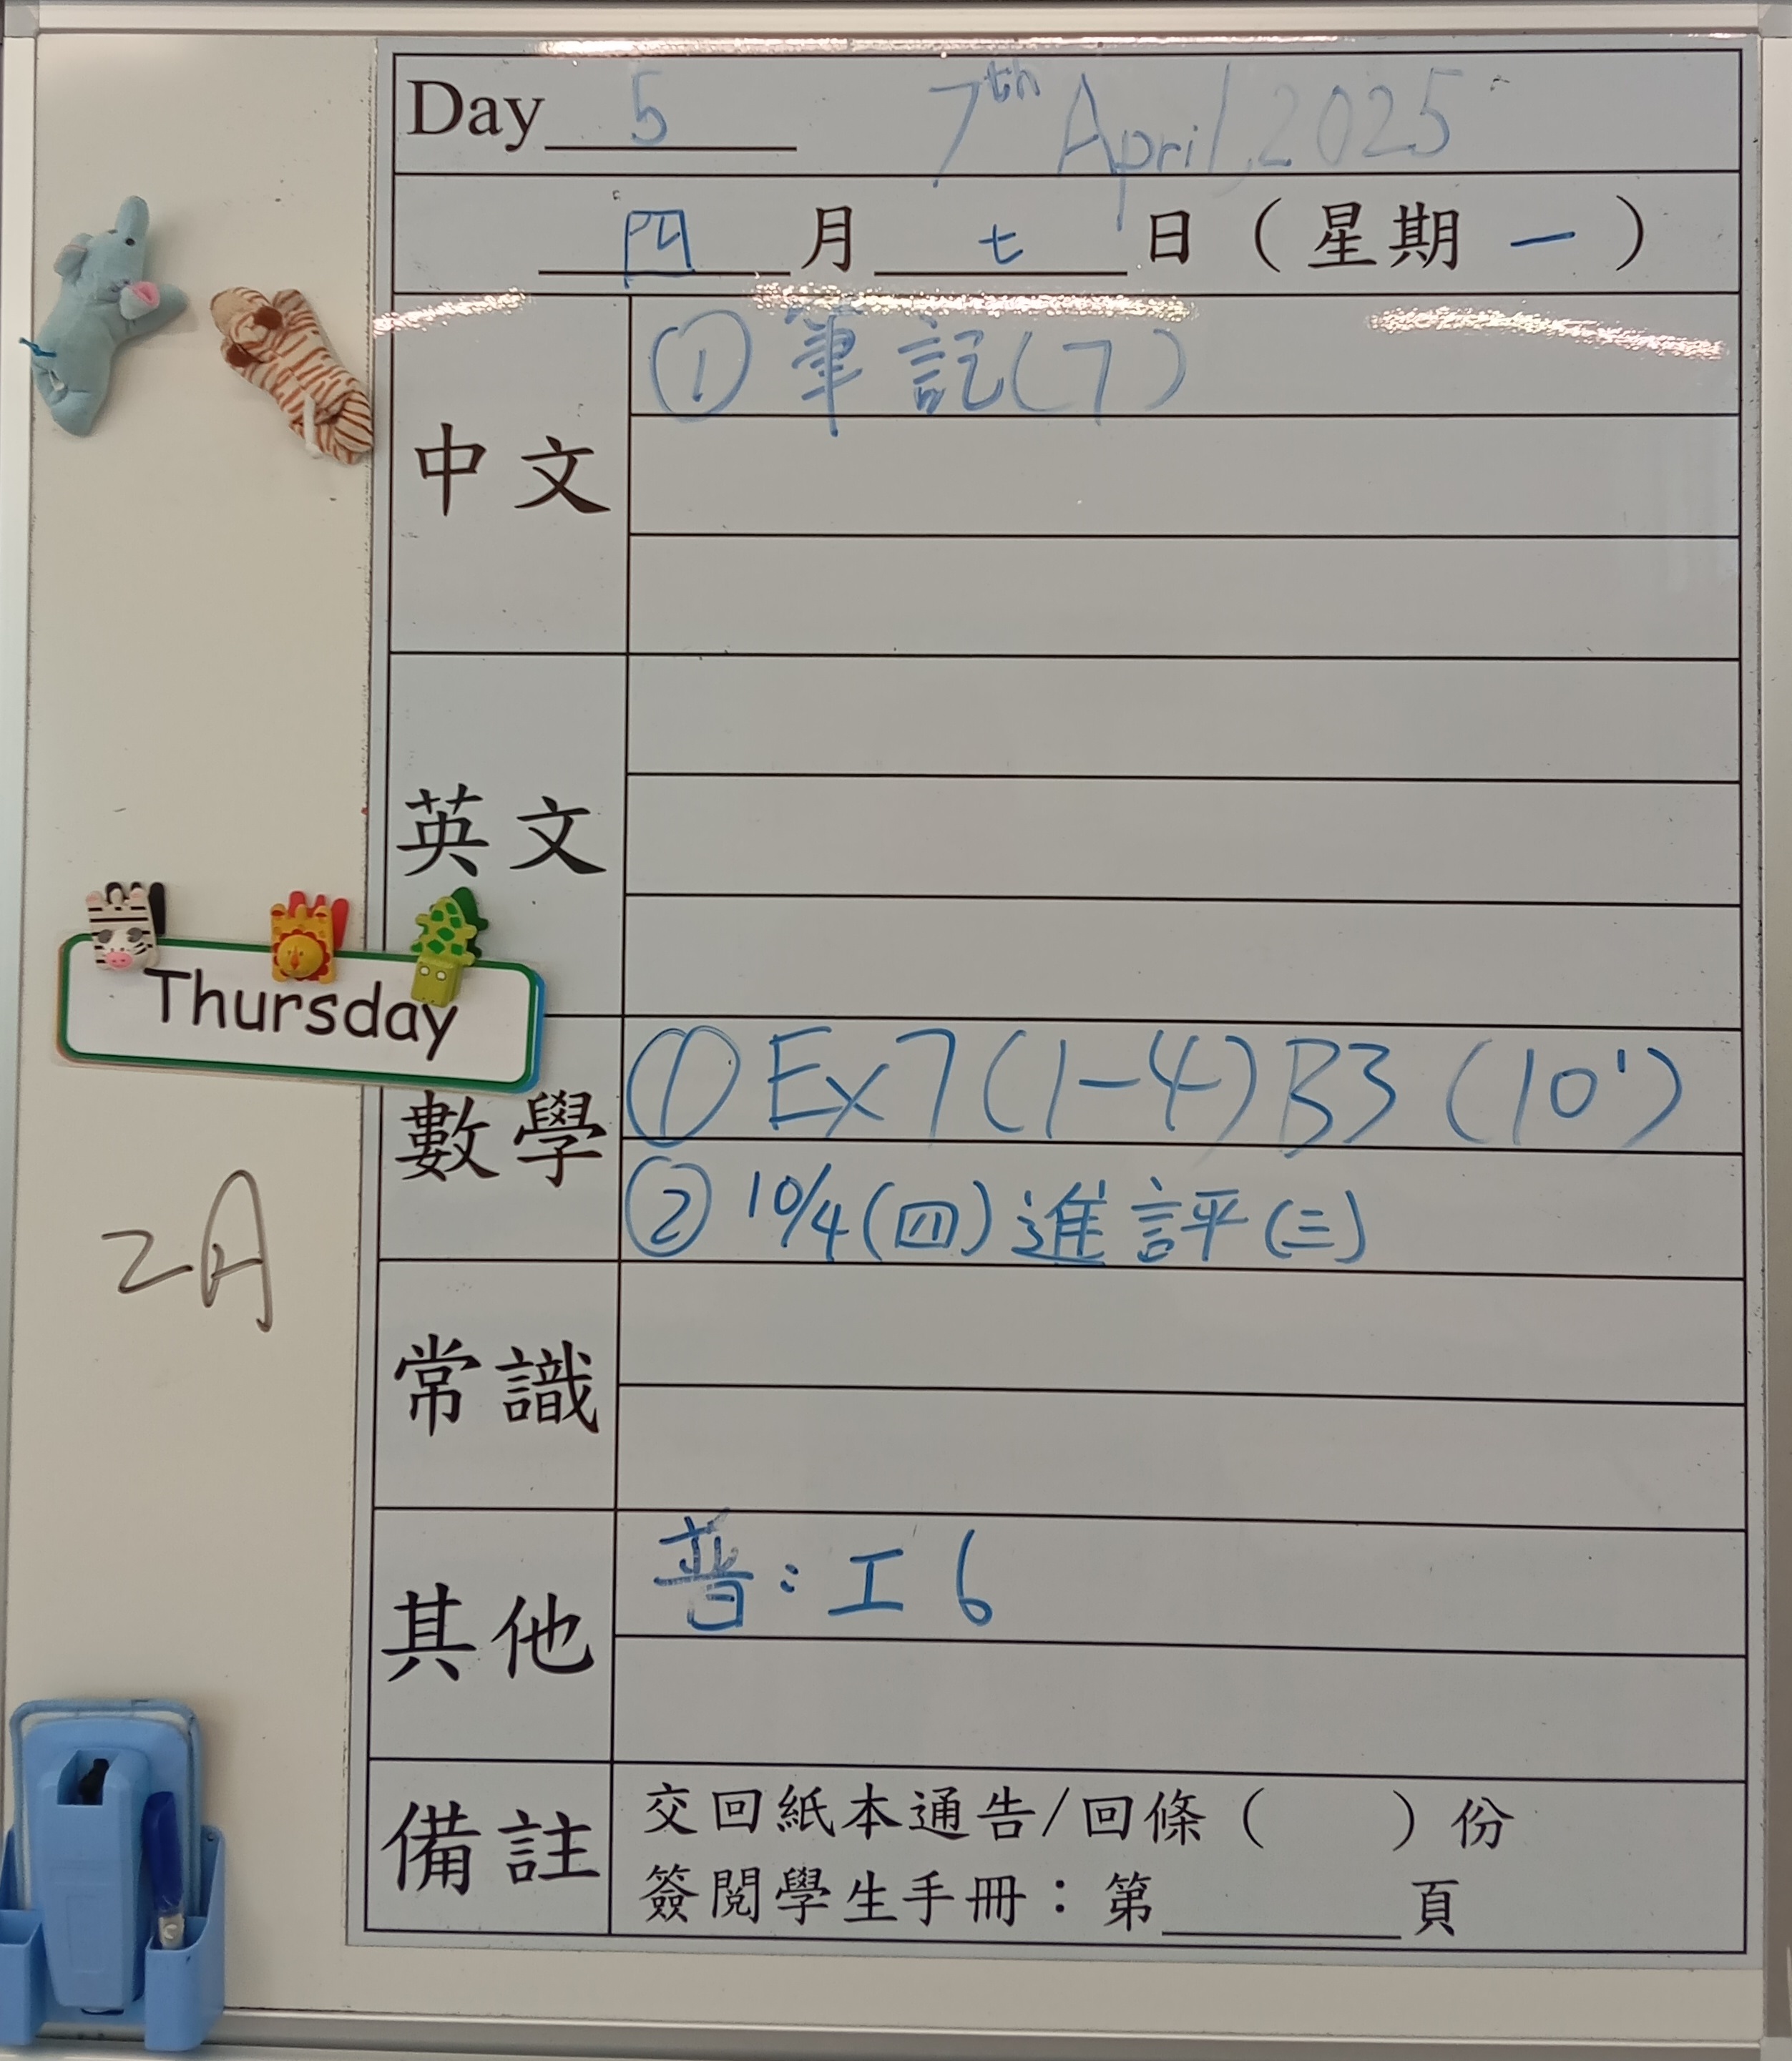 Day 5 7th April, 2025
四 月 七 日 ( 星期 一 )
中文
① 筆記(7)
英文
Thursday
數學
① Ex7(1-4) B3 (10')
② 10/4(四) 進評(三)
2A
常識
其他
普:工6
備註
交回紙本通告/回條 ( ) 份
簽閱學生手冊:第______頁